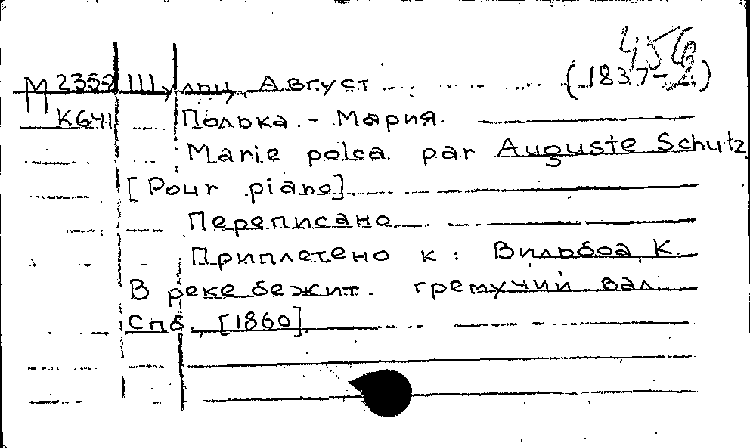 456
М 2359 Шульц, Август (1837-?)
К641 Полька - Мария.
Marie polca par Auguste Schutz
[Pour piano].
Переписано
Приплетено к: Вильбоа, К.
В реке бежит гремучий вал.
Спб. [1860].